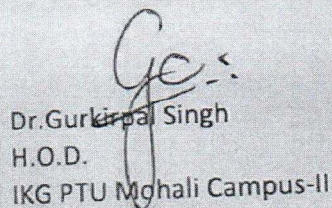 Dr.Gurkirpal Singh
H.O.D.
IKG PTU Mohali Campus-II